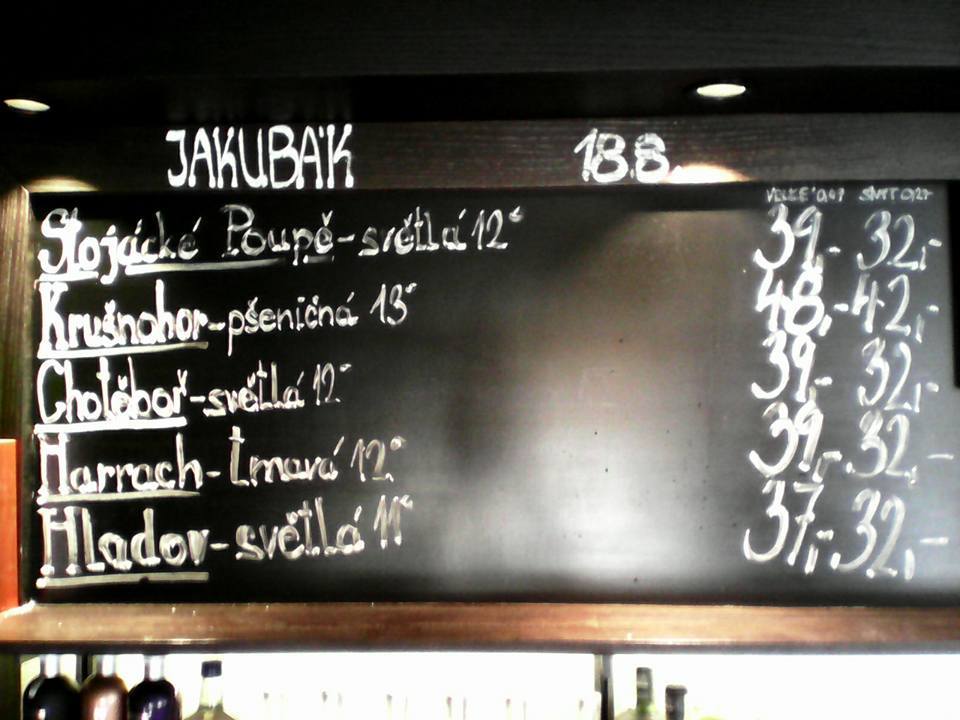 JAKUBÁK 18.8.
Slojácké Poupě-světlá 12° 39,- 32,-
Krušnohor-pšeničná 13° 48,- 42,-
Chotěboř-světlá 12° 39,- 32,-
Harrach-tmavá 12° 39,- 32,-
Hladov-světlá 11° 37,- 32,-